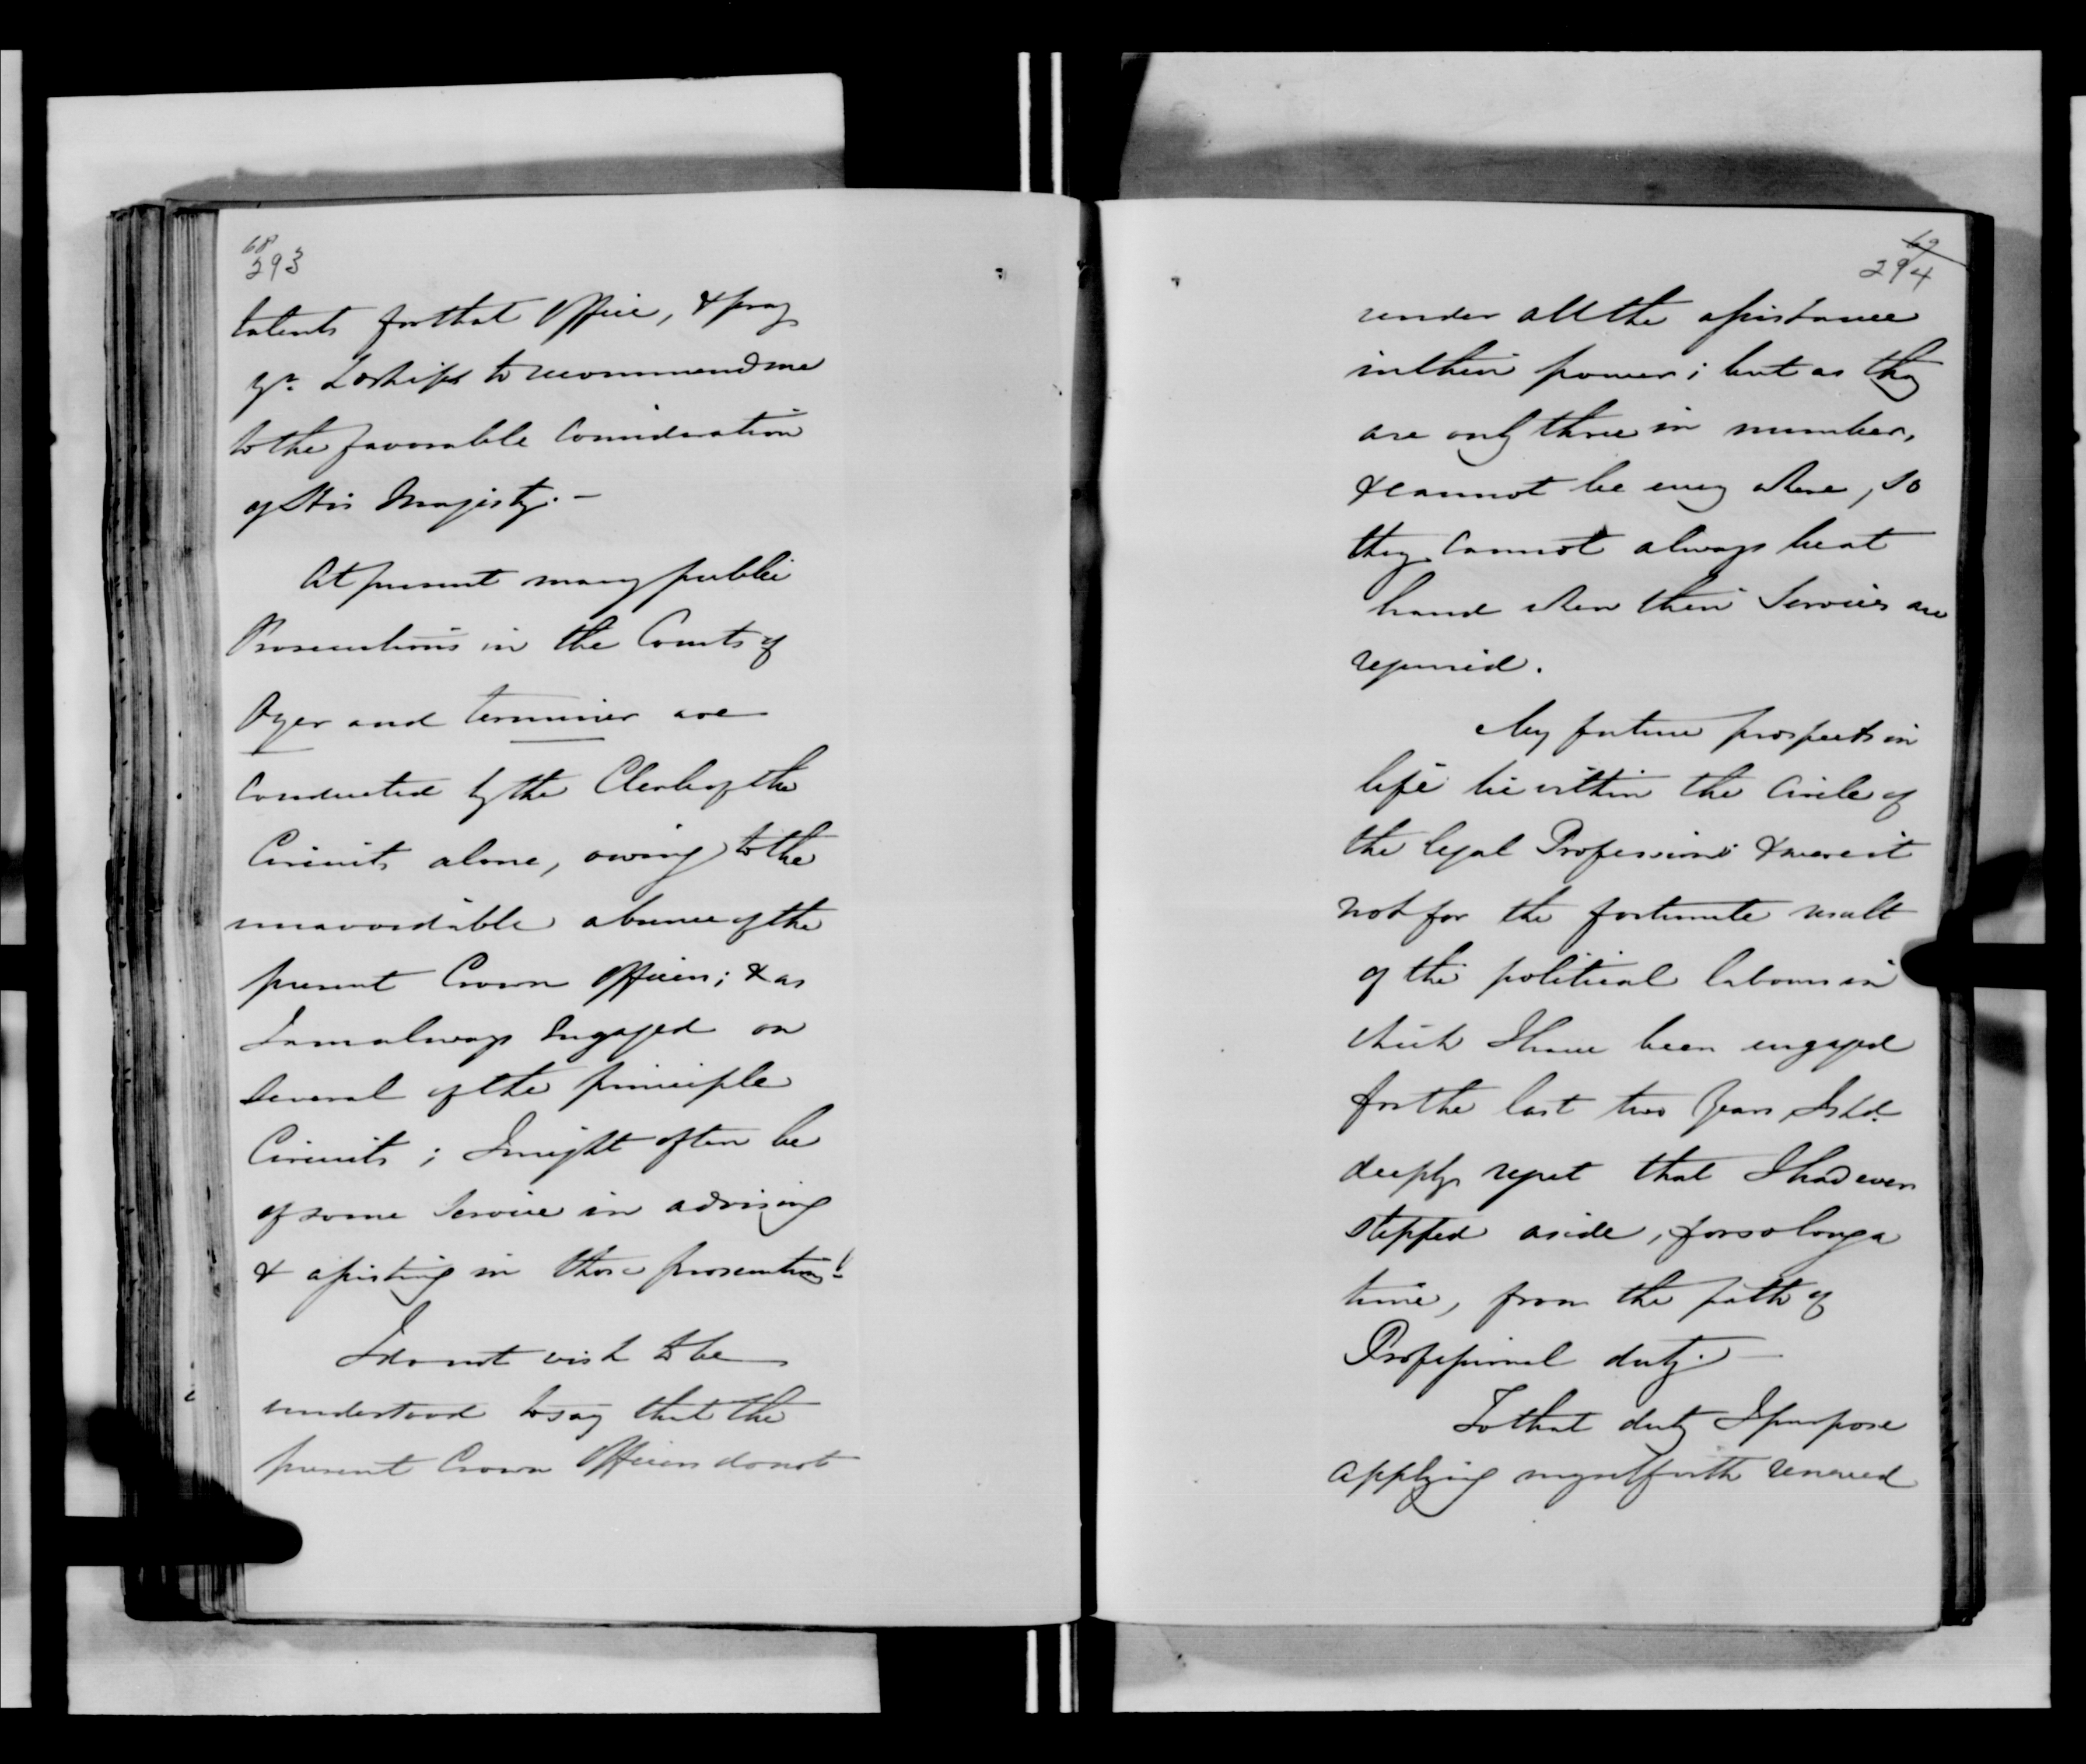 68
293
talents for that Office, & pray
yr. Lordships to recommend me
to the favorable Consideration
of His Majesty. —
At present many public
Prosecutions in the Courts of
Oyer and terminer are
Conducted by the Clerk of the
Circuit alone, owing to the
unavoidable absence of the
present Crown Officers; & as
I am always Engaged on
Several of the principle
Circuits; I might often be
of some Service in advising
& assisting in those prosecutions! -
I do not wish to be
understood to say that the
present Crown Officers do not
69
294
render all the assistance
in their power; but as they
are only three in number,
& cannot be every where, so
they cannot always be at
hand when their Services are
required.
My future prospects in
life lie within the Circle of
the legal Profession; & were it
not for the fortunate result
of the political labours in
which I have been engaged
for the last two Years, I shd.
deeply regret that I had ever
stepped aside, for so long a
time, from the path of
Professional duty. —
To that duty I purpose
applying myself with renewed